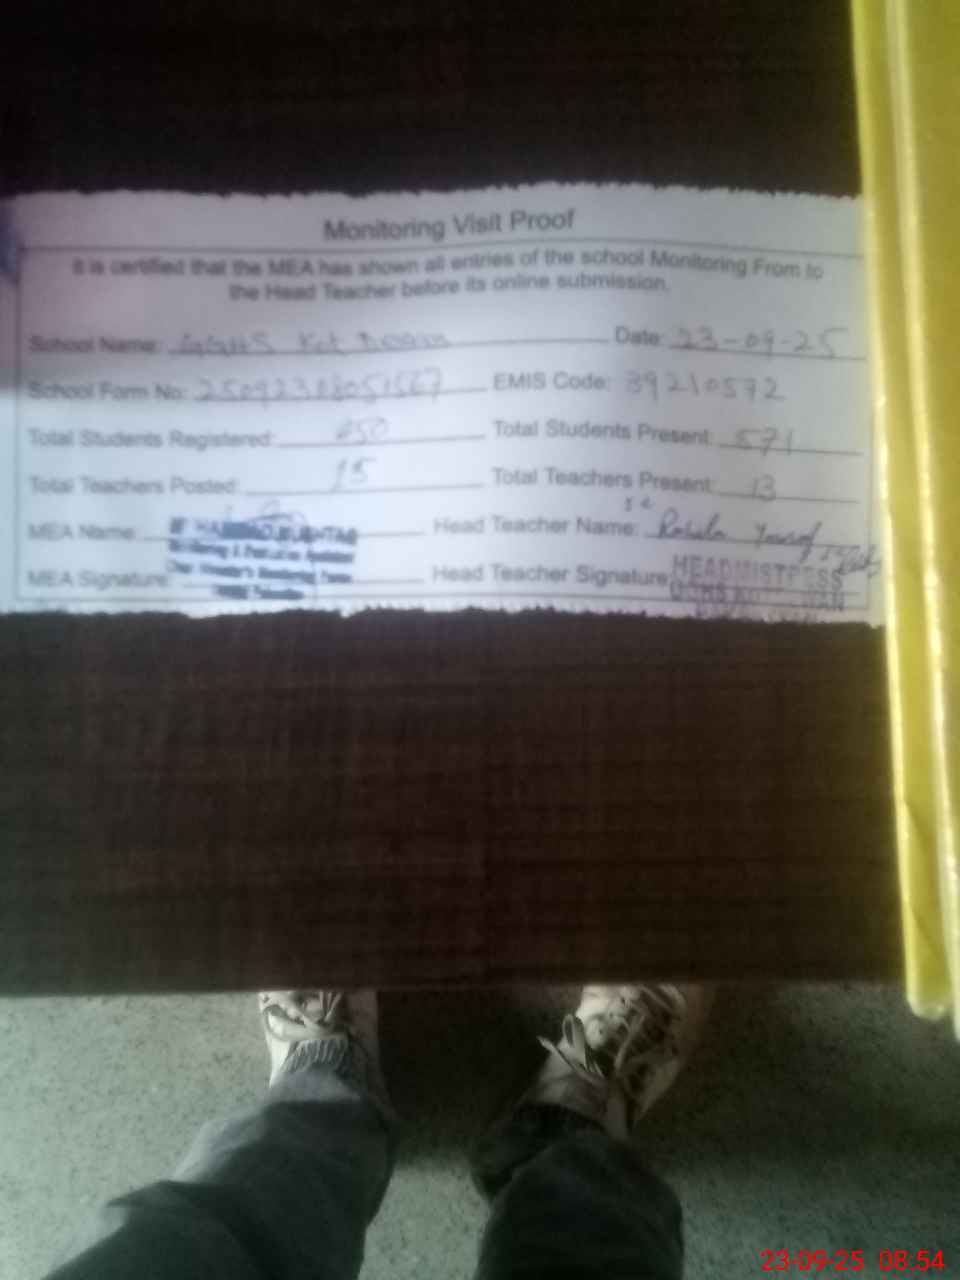 Monitoring Visit Proof
It is certified that the MEA has shown all entries of the school Monitoring From to
the Head Teacher before its online submission.
School Name: GGHS Kot Date: 23-09-25
School Form No: EMIS Code: 39210572
Total Students Registered: 650 Total Students Present: 571
Total Teachers Posted: 15 Total Teachers Present: 13
MEA Name: Head Teacher Name: Rahila Yousaf
MEA Signature: Head Teacher Signature:
HEADMISTRESS
23-09-25 08:54